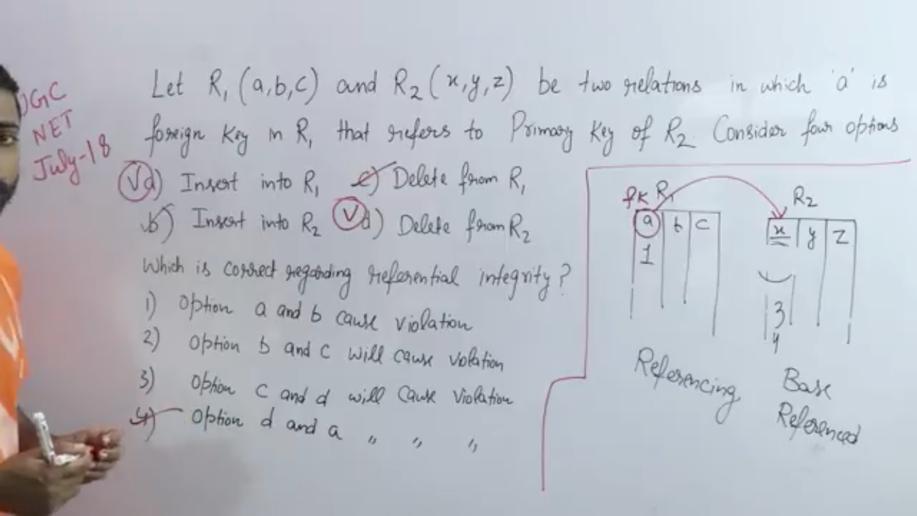 UGC
NET
July-18
Let R₁ (a,b,c) and R₂ (x,y,z) be two relations in which 'a' is
foreign key in R₁ that refers to Primary Key of R₂. Consider four options
a) Insert into R₁ c) Delete from R₁
b) Insert into R₂ d) Delete from R₂
Which is correct regarding referential integrity?
1) Option a and b cause violation
2) Option b and c will cause violation
3) Option c and d will cause violation
4) Option d and a " " "
fk R₁
a b c
1
Referencing
R₂
x y z
3
4
Base
Referenced